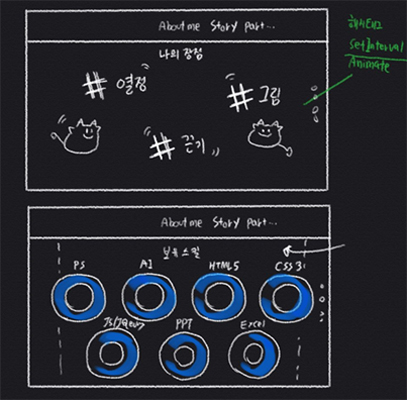 About me Story part...
나의 장점
해시태그
SetInterval
Animate
# 열정
# 그림
# 끈기
About me Story part...
보유스킬
PS
AI
HTML5
CSS3
JS/JQuery
PPT
Excel